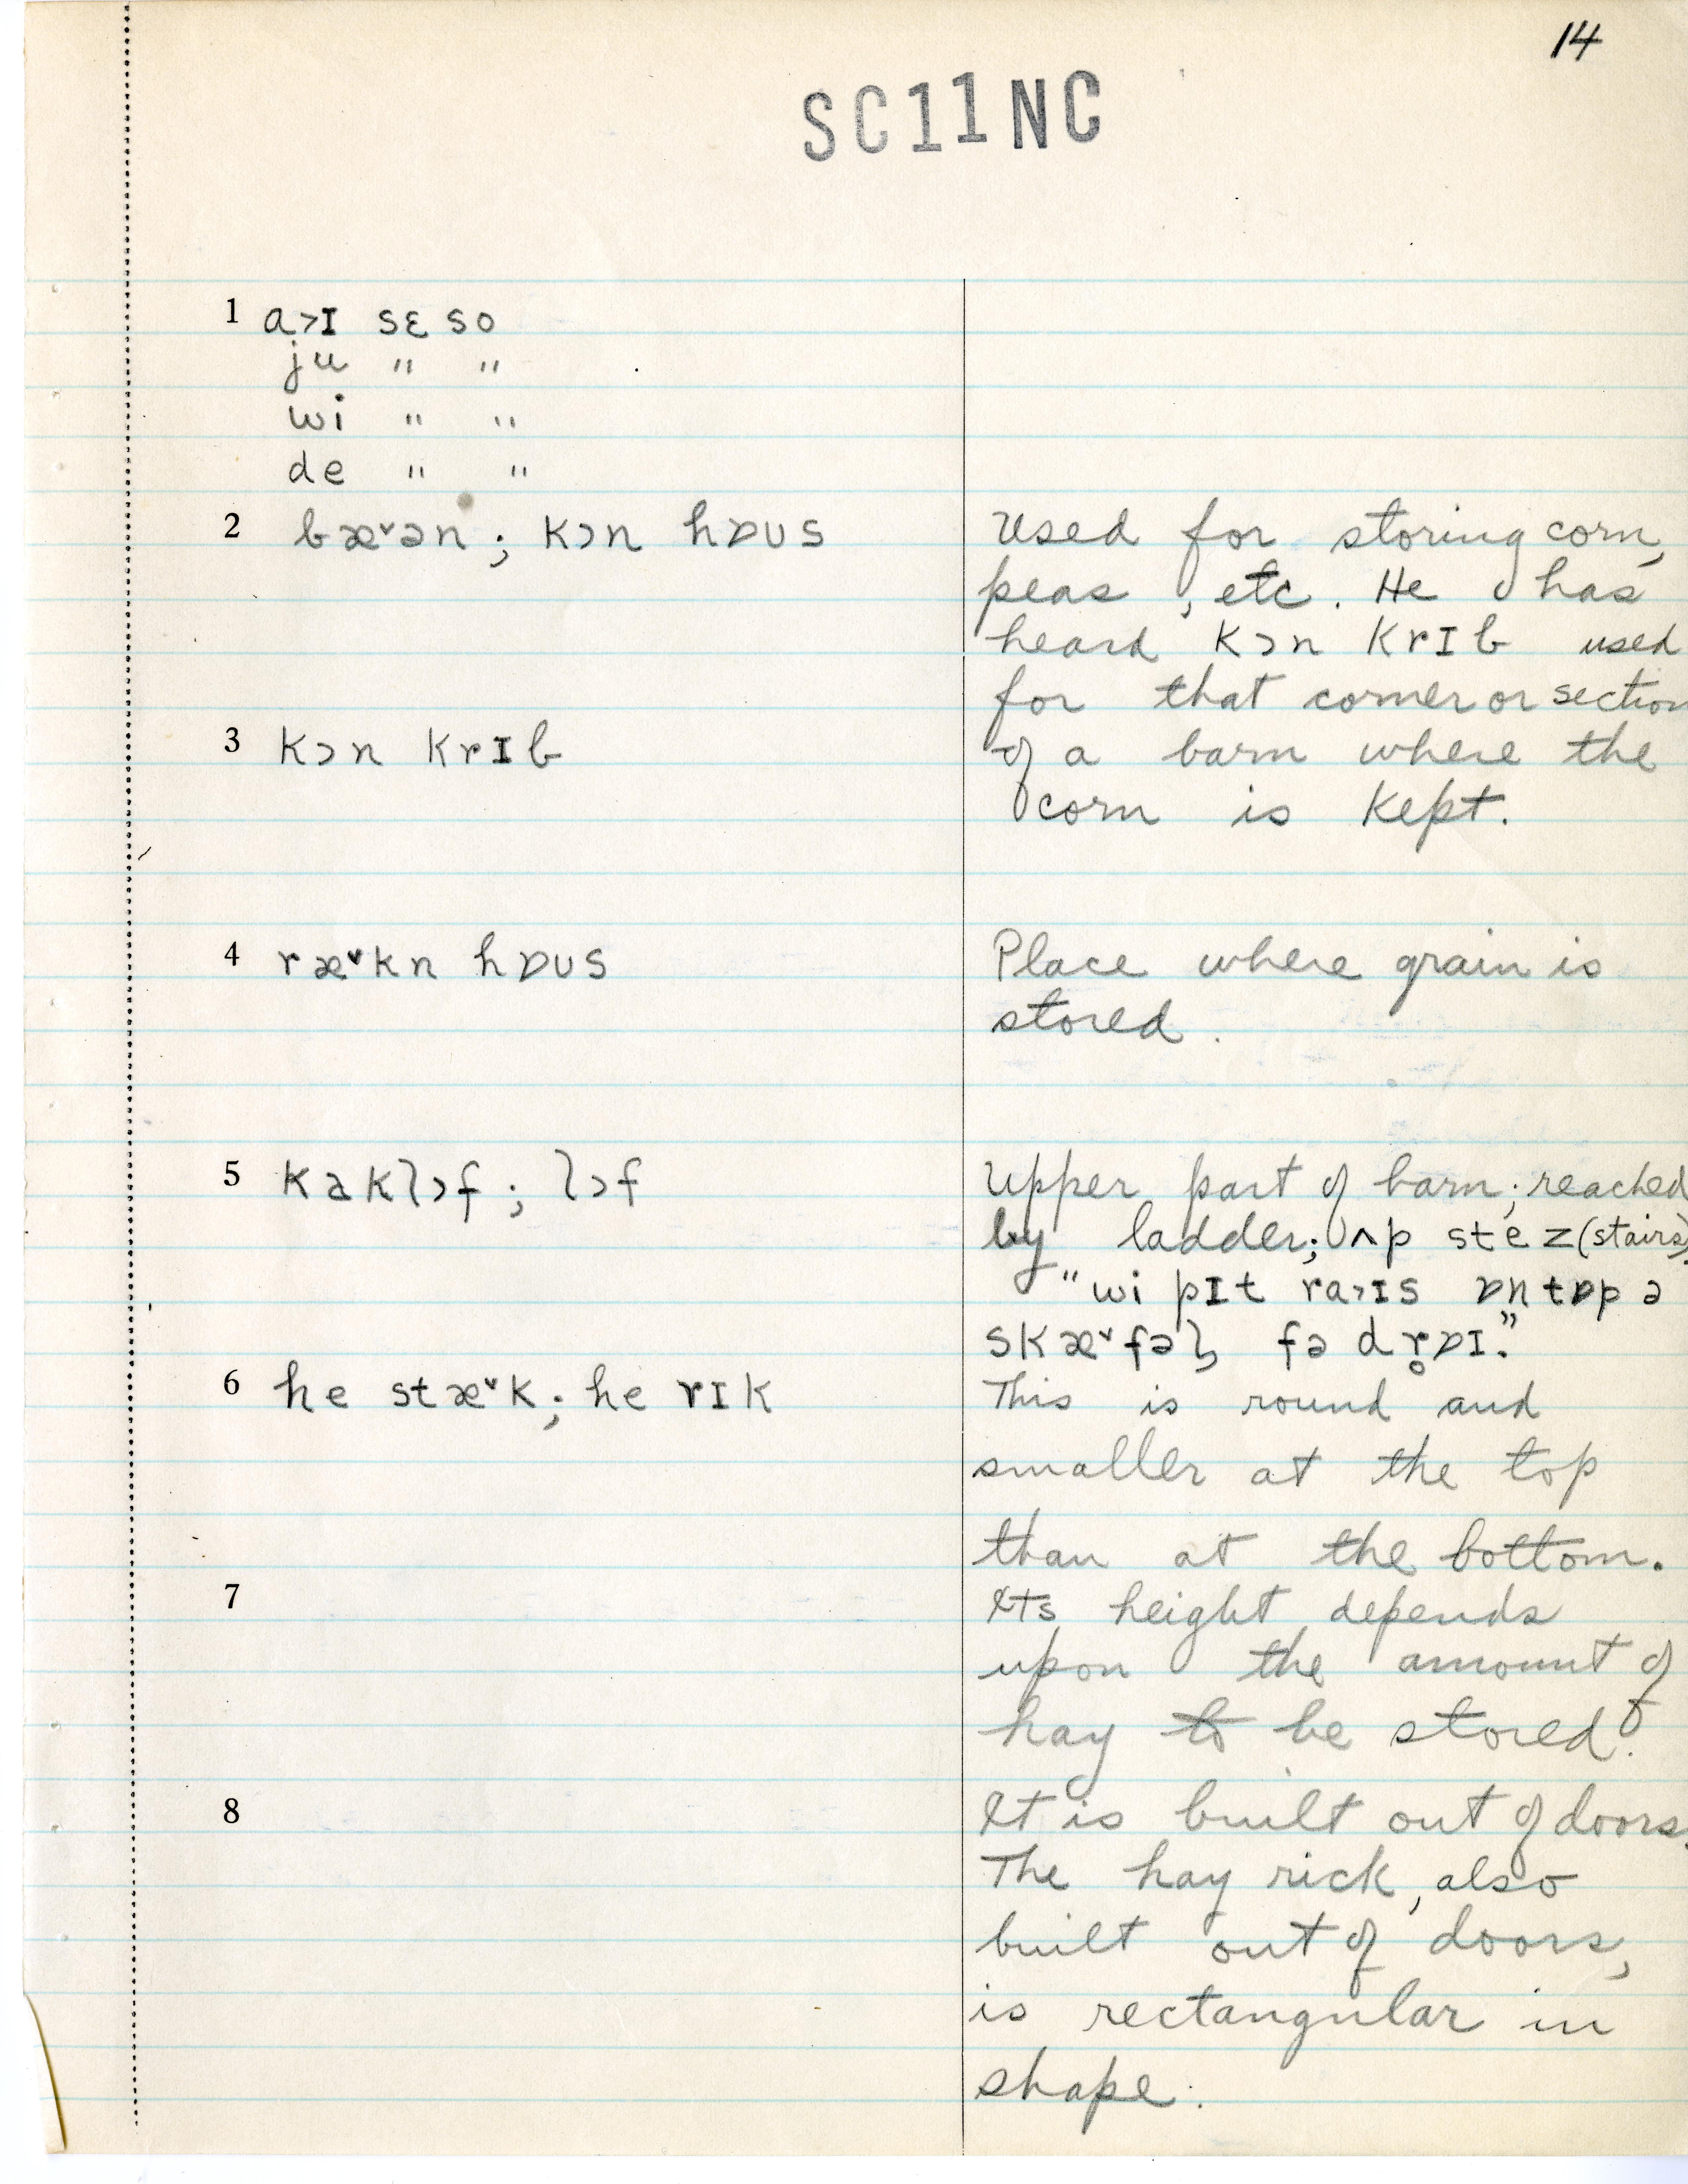 14
SC11NC
1 a>ɪ sɛ so
ju " "
wi " "
de " "
2 bæ˅ən ; kɔn hɒʊs
Used for storing corn,
peas, etc. He has
heard kɔn krɪb used
for that corner or section
3 kɔn krɪb
of a barn where the
corn is kept.
4 ræ˅kn hɒʊs
Place where grain is
stored.
5 kaklɔf ; lɔf
Upper part of barn; reached
by ladder; ʌp stez (stairs).
"wi pɪt ra>ɪs ɒn tɒp ə
skæ˅fəl̩ fə dr̥ɒɪ."
6 he stæ˅k ; he rɪk
This is round and
smaller at the top
than at the bottom.
7
Its height depends
upon the amount of
hay to be stored.
8
It is built out of doors.
The hay rick, also
built out of doors,
is rectangular in
shape.